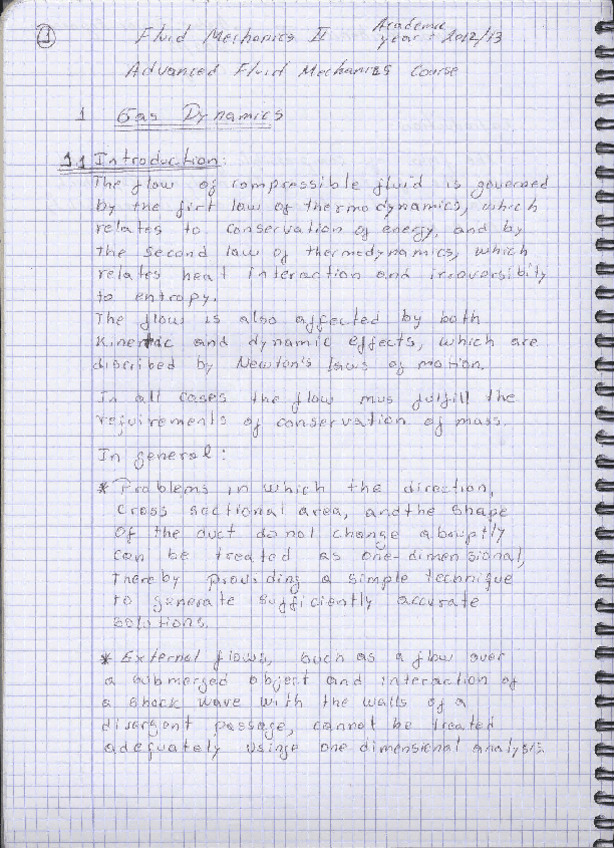 1
Fluid Mechanics II
Academic
year: 2012/13
Advanced Fluid Mechanics Course
1 Gas Dynamics
1.1 Introduction:
The flow of compressible fluid is governed
by the firt law of thermodynamics, which
relates to conservation of energy, and by
the second law of thermodynamics, which
relates heat interaction and irreversibity
to entropy.
The flow is also affected by both
Kinetic and dynamic effects, which are
discribed by Newton's laws of motion.
In all cases the flow mus fulfill the
requirements of conservation of mass.
In general:
* Problems in which the direction,
cross sectional area, and the shape
of the duct do not change abruptly
can be treated as one-dimensional,
thereby providing a simple technique
to generate sufficiently accurate
solutions.
* External flows, such as a flow over
a submerged object and interaction of
a shock wave with the walls of a
divergent passage, cannot be treated
adequately usinge one dimensional analysis.